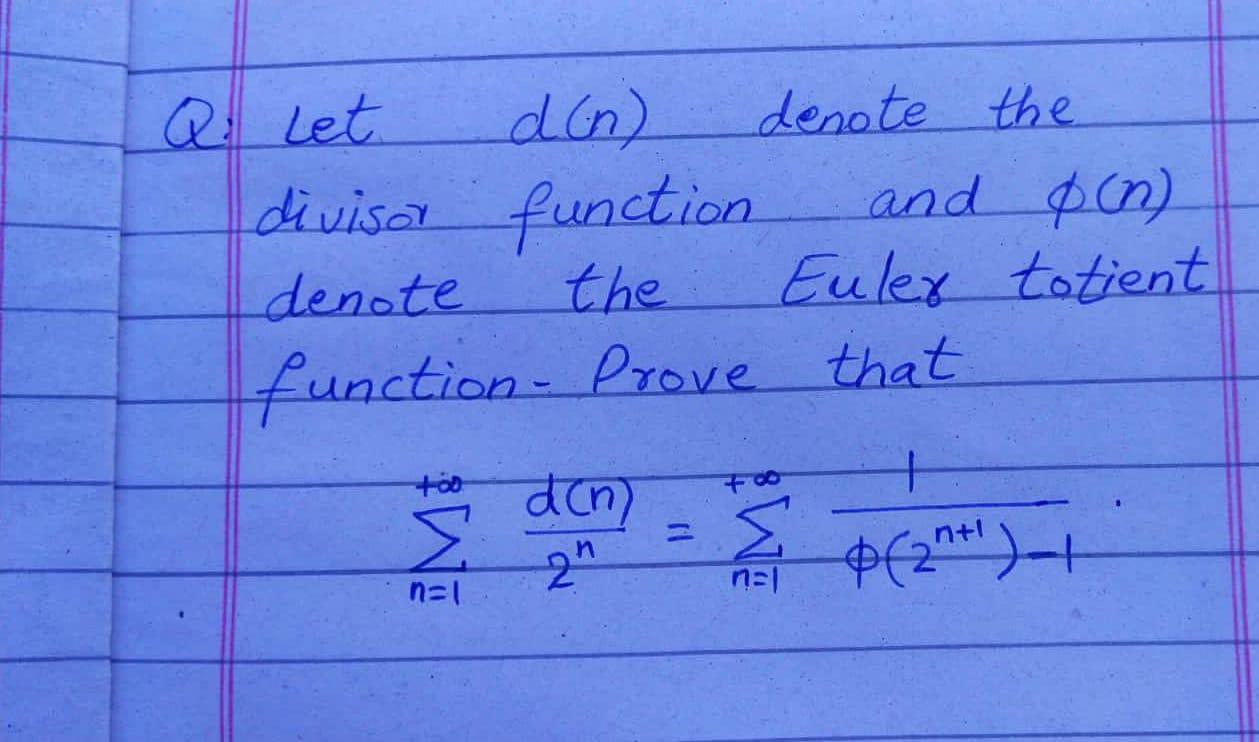 Q: Let d(n) denote the
divisor function and φ(n)
denote the Euler totient
function - Prove that
+∞ ∑ n=1 d(n)/2^n = +∞ ∑ n=1 1/(φ(2^{n+1})-1) .